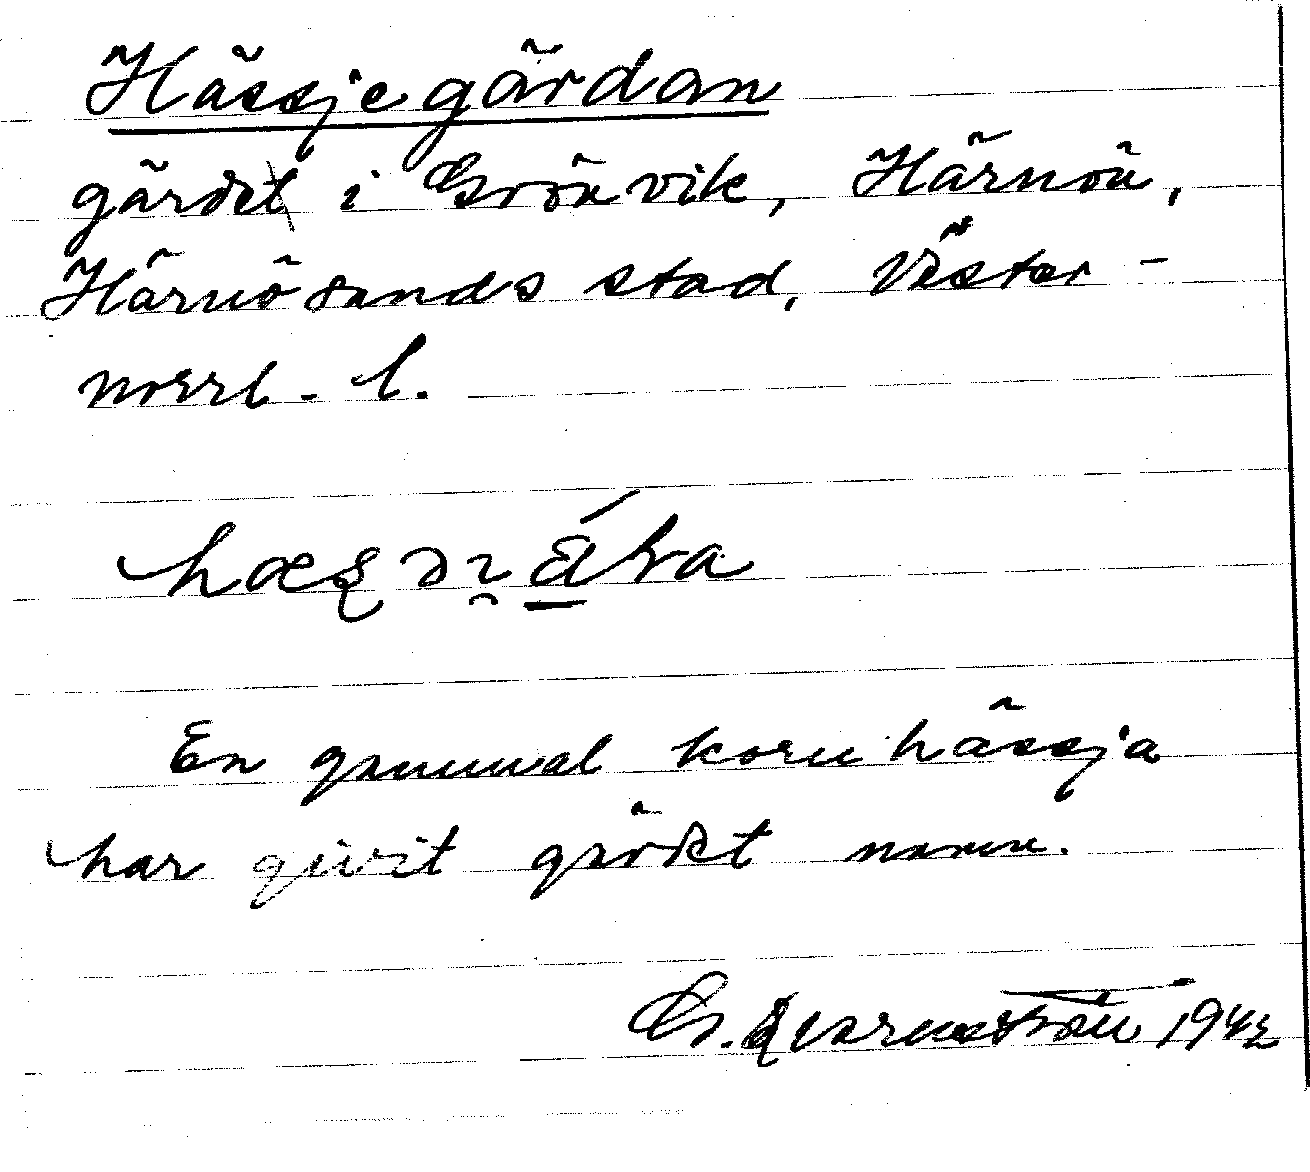 Hässjegärdan
gärdet i Grönvik, Härnön,
Härnösands stad, Väster-
norrl. l.
En gammal kornhässja
har givit gärdet namn.
G. Qvarnström 1942